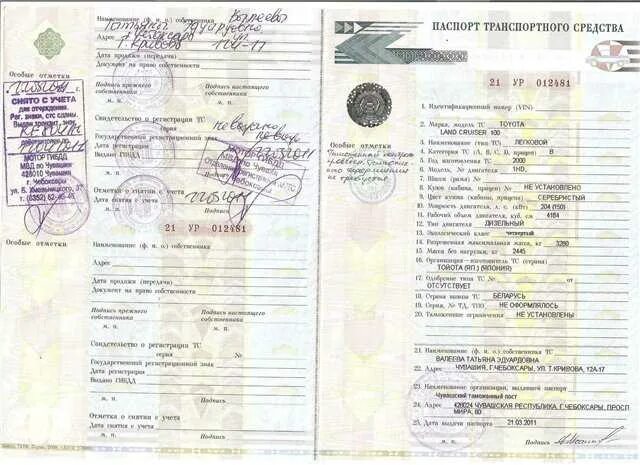 Наименование (ф. и. о.) собственника Валеева
Татьяна Эдуардовна
Адрес г. Чебоксары ул.
Т. Кривова 12А-17
Дата продажи (передачи)
Документ на право собственности
Особые отметки
Подпись прежнего собственника
Подпись настоящего собственника
м. п.
м. п.
СНЯТО С УЧЕТА
для отчуждения.
Рег. знаки, стс сданы.
МОТОР ГИБДД
МВД по Чувашии
428010 Чувашия
г. Чебоксары
ул. Б. Хмельницкого, 37
т. (8352)
Свидетельство о регистрации ТС
серия №
Государственный регистрационный знак
Дата регистрации
Выдано ГИБДД
м. п.
Подпись
Отметка о снятии с учета
Дата снятия с учета
м. п.
Подпись
21 УР 012481
Особые отметки
Наименование (ф. и. о.) собственника
Адрес
Дата продажи (передачи)
Документ на право собственности
Подпись прежнего собственника
Подпись настоящего собственника
м. п.
м. п.
Свидетельство о регистрации ТС
серия №
Государственный регистрационный знак
Дата регистрации
Выдано ГИБДД
м. п.
Подпись
Отметка о снятии с учета
Дата снятия с учета
м. п.
Подпись
ПАСПОРТ ТРАНСПОРТНОГО СРЕДСТВА
21 УР 012481
Особые отметки
1. Идентификационный номер (VIN)
2. Марка, модель ТС TOYOTA
LAND CRUISER 100
3. Наименование (тип ТС) ЛЕГКОВОЙ
4. Категория ТС (А, В, С, D, прицеп) В
5. Год изготовления ТС 2000
6. Модель, № двигателя 1HD,
7. Шасси (рама) №
8. Кузов (кабина, прицеп) № НЕ УСТАНОВЛЕНО
9. Цвет кузова (кабины, прицепа) СЕРЕБРИСТЫЙ
10. Мощность двигателя, л. с. (кВт) 204 (150)
11. Рабочий объем двигателя, куб. см 4164
12. Тип двигателя ДИЗЕЛЬНЫЙ
13. Экологический класс четвертый
14. Разрешенная максимальная масса, кг 3260
15. Масса без нагрузки, кг 2445
16. Организация-изготовитель ТС (страна)
ТОЙОТА (ЯП.) (ЯПОНИЯ)
17. Одобрение типа ТС № от
ОТСУТСТВУЕТ
18. Страна вывоза ТС БЕЛАРУСЬ
19. Серия, № ТД, ТПО НЕ ОФОРМЛЯЛОСЬ
20. Таможенные ограничения НЕ УСТАНОВЛЕНЫ
21. Наименование (ф. и. о.) собственника ТС
ВАЛЕЕВА ТАТЬЯНА ЭДУАРДОВНА
22. Адрес ЧУВАШИЯ, Г.ЧЕБОКСАРЫ, УЛ. Т.КРИВОВА, 12А-17
23. Наименование организации, выдавшей паспорт
Чувашский таможенный пост
24. Адрес 428024 ЧУВАШСКАЯ РЕСПУБЛИКА, Г.ЧЕБОКСАРЫ, ПРОСП
МИРА, 80
25. Дата выдачи паспорта 21.03.2011
М. п. Подпись